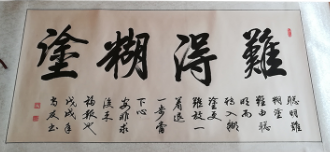 難得糊塗
聰明難
糊塗
難由聰
明而
轉入糊
塗更
難放一
着退
一步當
下心
安非求
後來
福報也
戊戌年